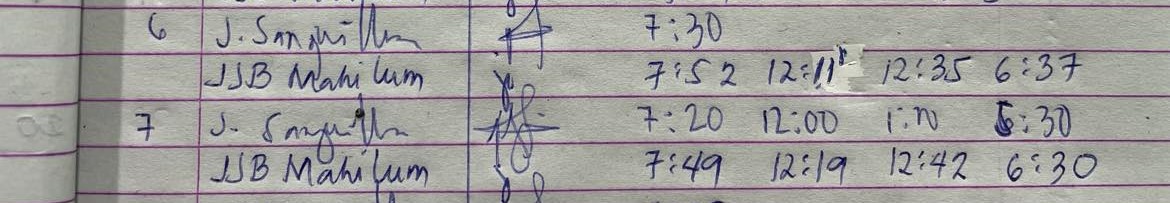 6 J. Sanguilla 7:30
JJB Mahilum 7:52 12:11 12:35 6:37
7 J. Sanguilla 7:20 12:00 1:20 5:30
JJB Mahilum 7:49 12:19 12:42 6:30